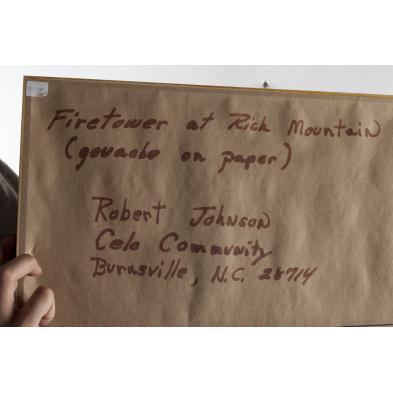 Firetower at Rich Mountain
(gouache on paper)
Robert Johnson
Celo Community
Burnsville, N.C. 28714